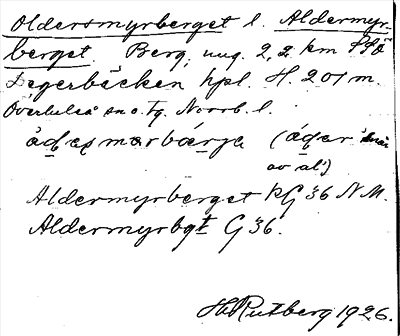 Oldersmyrberget l. Aldermyr-
berget Berg, ung. 2,2 km SSO
Degerbäcken hpl. H. 201 m.
Överluleå sn o. tg. Norrb. l.
(åder
av al)
Aldermyrberget kG 36 N.M.
Aldermyrbgt G 36.
H. Rutberg 1926.